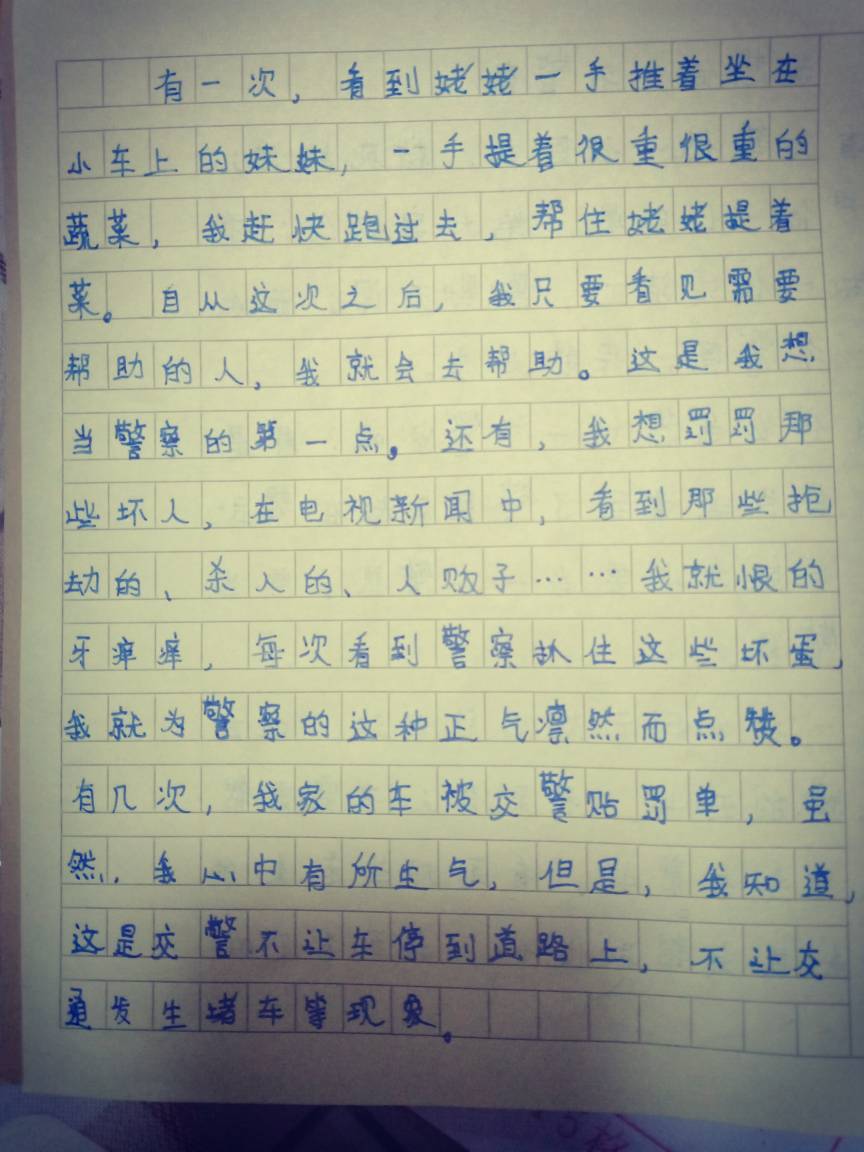 有一次，看到姥姥一手推着坐在
小车上的妹妹，一手提着很重很重的
蔬菜，我赶快跑过去，帮住姥姥提着
菜。自从这次之后，我只要看见需要
帮助的人，我就会去帮助。这是我想
当警察的第一点。还有，我想罚罚那
些坏人，在电视新闻中，看到那些抢
劫的、杀人的、人贩子……我就恨的
牙痒痒，每次看到警察抓住这些坏蛋，
我就为警察的这种正气凛然而点赞。
有几次，我家的车被交警贴罚单，虽
然，我心中有所生气，但是，我知道，
这是交警不让车停到道路上，不让交
通发生堵车等现象。